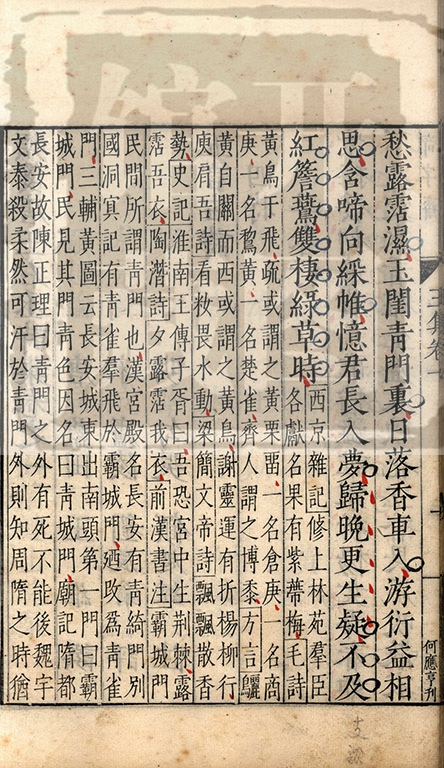 愁露霑濕玉閨青門裏日落香車入游衍益相
思含啼向綵帷憶君長入夢歸晚更生疑不及
紅簷鷰雙棲綠草時
西京雜記修上林苑羣臣
各獻名果有紫蔕梅毛詩
黃鳥于飛疏或謂之黃栗畱一名倉庚一名商
庚一名鵹黃一名楚雀齊人謂之博黍方言鸝
黃自關而西或謂之黃鳥謝靈運有折楊柳行
庾肩吾詩看妝畏水動梁簡文帝詩飄飄散香
勢史記淮南王傳子胥曰吾恐宮中生荆棘露
霑吾衣陶潛詩夕露霑我衣前漢書注霸城門
民間所謂青門也漢宮殿名長安有青綺門別
國洞冥記有青雀羣飛於霸城門廼改爲青雀
門三輔黃圖云長安城東出南頭第一門曰霸
城門民見其門青色因名曰青城門廟記隋都
長安故陳正理曰青門之外有死不能後魏宇
文泰殺柔然可汗於青門外則知周隋之時猶
何應亨刊